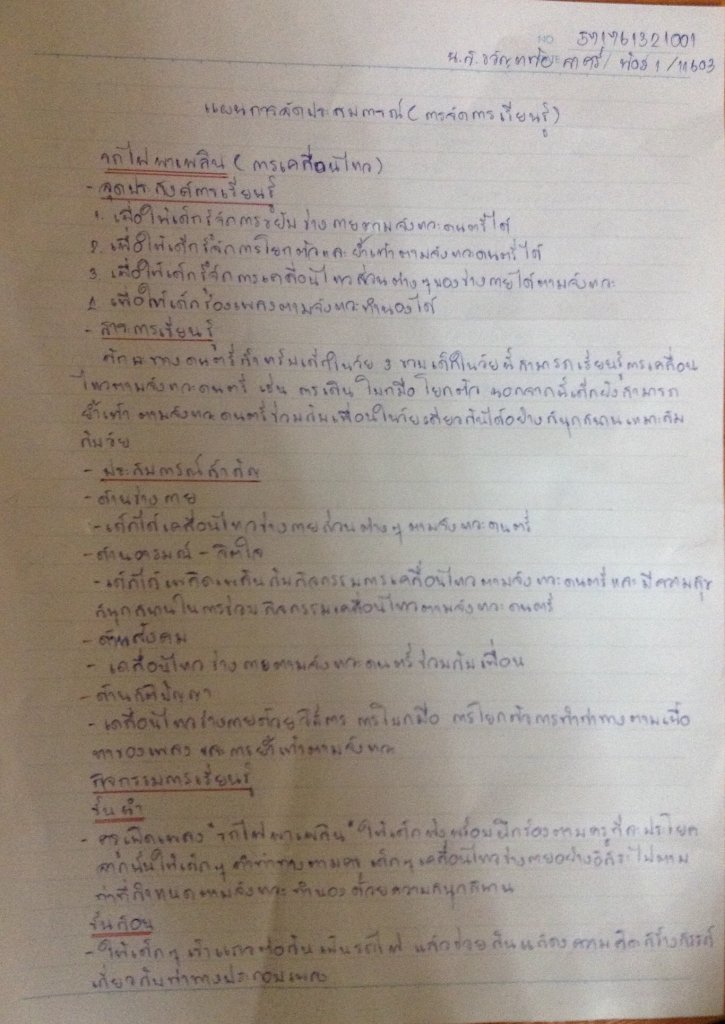 NO 571761321001
แผนการจัดประสบการณ์ (การจัดการเรียนรู้)
รถไฟพาเพลิน (การเคลื่อนไหว)
- จุดประสงค์การเรียนรู้
1. เพื่อให้เด็กรู้จักการขยับร่างกายตามจังหวะดนตรีได้
2. เพื่อให้เด็กรู้จักการโยกตัวและย้ำเท้าตามจังหวะดนตรีได้
3. เพื่อให้เด็กรู้จักการเคลื่อนไหวส่วนต่างๆของร่างกายได้ตามจังหวะ
4. เพื่อให้เด็กร้องเพลงตามจังหวะทำนองได้
- สาระการเรียนรู้
ทักษะทางดนตรีสำหรับเด็กในวัย 3 ขวบเด็กในวัยนี้สามารถเรียนรู้การเคลื่อน
ไหวตามจังหวะดนตรี เช่น การเดิน โบกมือ โยกตัว นอกจากนี้เด็กยังสามารถ
ย้ำเท้า ตามจังหวะดนตรีร่วมกับเพื่อนในวัยเดียวกันได้อย่างสนุกสนานเหมาะสม
กับวัย
- ประสบการณ์สำคัญ
- ด้านร่างกาย
- เด็กได้เคลื่อนไหวร่างกายส่วนต่างๆตามจังหวะดนตรี
- ด้านอารมณ์ - จิตใจ
- เด็กได้เพลิดเพลินกับกิจกรรมการเคลื่อนไหวตามจังหวะดนตรีและมีความสุข
สนุกสนานในการร่วมกิจกรรมเคลื่อนไหวตามจังหวะดนตรี
- ด้านสังคม
- เคลื่อนไหวร่างกายตามจังหวะดนตรีร่วมกับเพื่อน
- ด้านสติปัญญา
- เคลื่อนไหวร่างกายด้วยวิธีการ การโบกมือ การโยกตัวการทำท่าทางตามเนื้อ
หาของเพลง และการย้ำเท้าตามจังหวะ
กิจกรรมการเรียนรู้
ขั้นนำ
- ครูเปิดเพลง "รถไฟพาเพลิน" ให้เด็กฟังพร้อมฝึกร้องตามครูทีละประโยค
จากนั้นให้เด็กๆ ทำท่าทางตามครู เด็กๆเคลื่อนไหวร่างกายอย่างอิสระไปตาม
ท่าที่กำหนดตามจังหวะทำนองด้วยความสนุกสนาน
ขั้นสอน
- ให้เด็กๆ เข้าแถวต่อกันเป็นรถไฟ แล้วช่วยกันแสดงความคิดสร้างสรรค์
เกี่ยวกับท่าทางประกอบเพลง